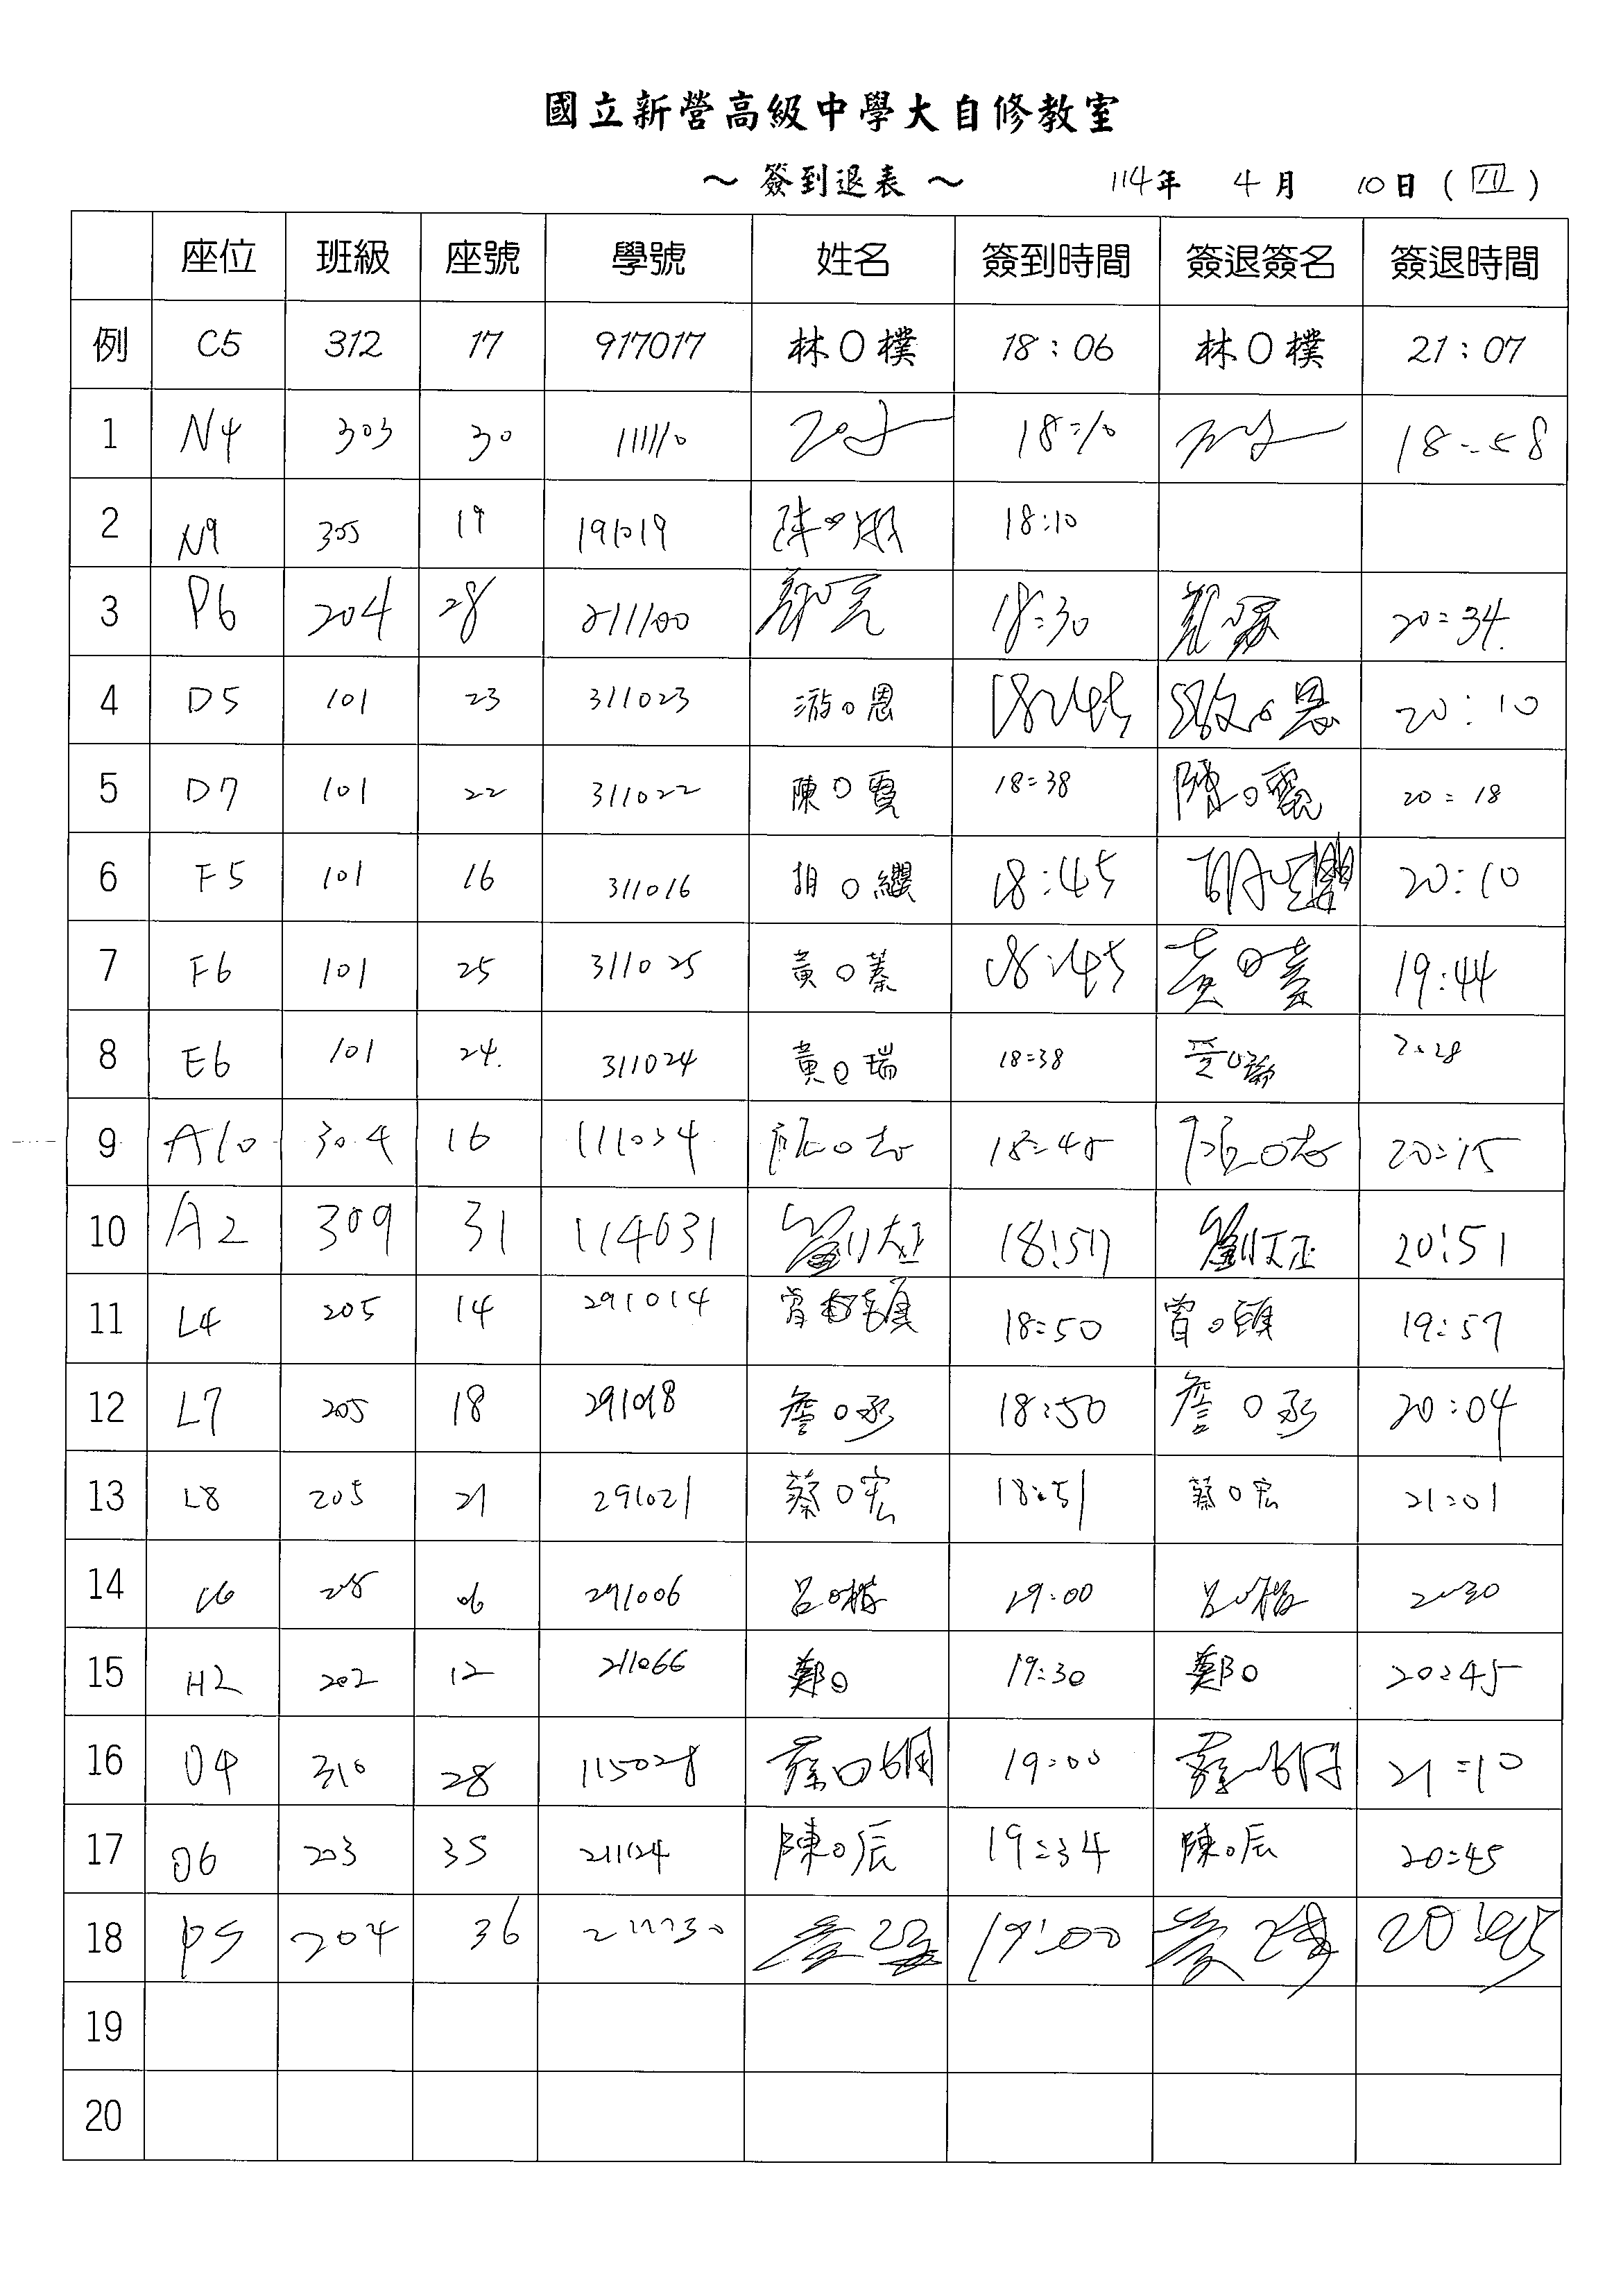 國立新營高級中學大自修教室
～ 簽到退表 ～ 114年 4月 10日 (四)
座位 班級 座號 學號 姓名 簽到時間 簽退簽名 簽退時間
例 C5 312 17 917017 林O樸 18:06 林O樸 21:07
1 N4 303 30 111110 18:10 18:58
2 N9 305 19 191019 18:10
3 P6 204 28 211100 18:30 20:34
4 D5 101 23 311023 游O恩 18:45 游O恩 20:10
5 D7 101 22 311022 陳O賢 18:38 陳O賢 20:18
6 F5 101 16 311016 胡O纓 18:45 20:10
7 F6 101 25 311025 黃O蓁 18:45 黃O蓁 19:44
8 E6 101 24 311024 黃O瑞 18:38 黃O瑞
9 A10 304 16 111034 18:45 20:15
10 A2 309 31 114031 18:57 20:51
11 L4 205 14 291014 18:50 曾O頤 19:57
12 L7 205 18 291018 詹O丞 18:50 詹O丞 20:04
13 L8 205 21 291021 蔡O宏 18:51 蔡O宏 21:01
14 205 06 291006 19:00 20:30
15 H2 202 12 211066 鄭O 19:30 鄭O 20:45
16 O4 310 28 115028 19:00 21:10
17 O6 203 35 211124 陳O辰 19:34 陳O辰 20:45
18 P5 204 36 19:00 20:45
19
20